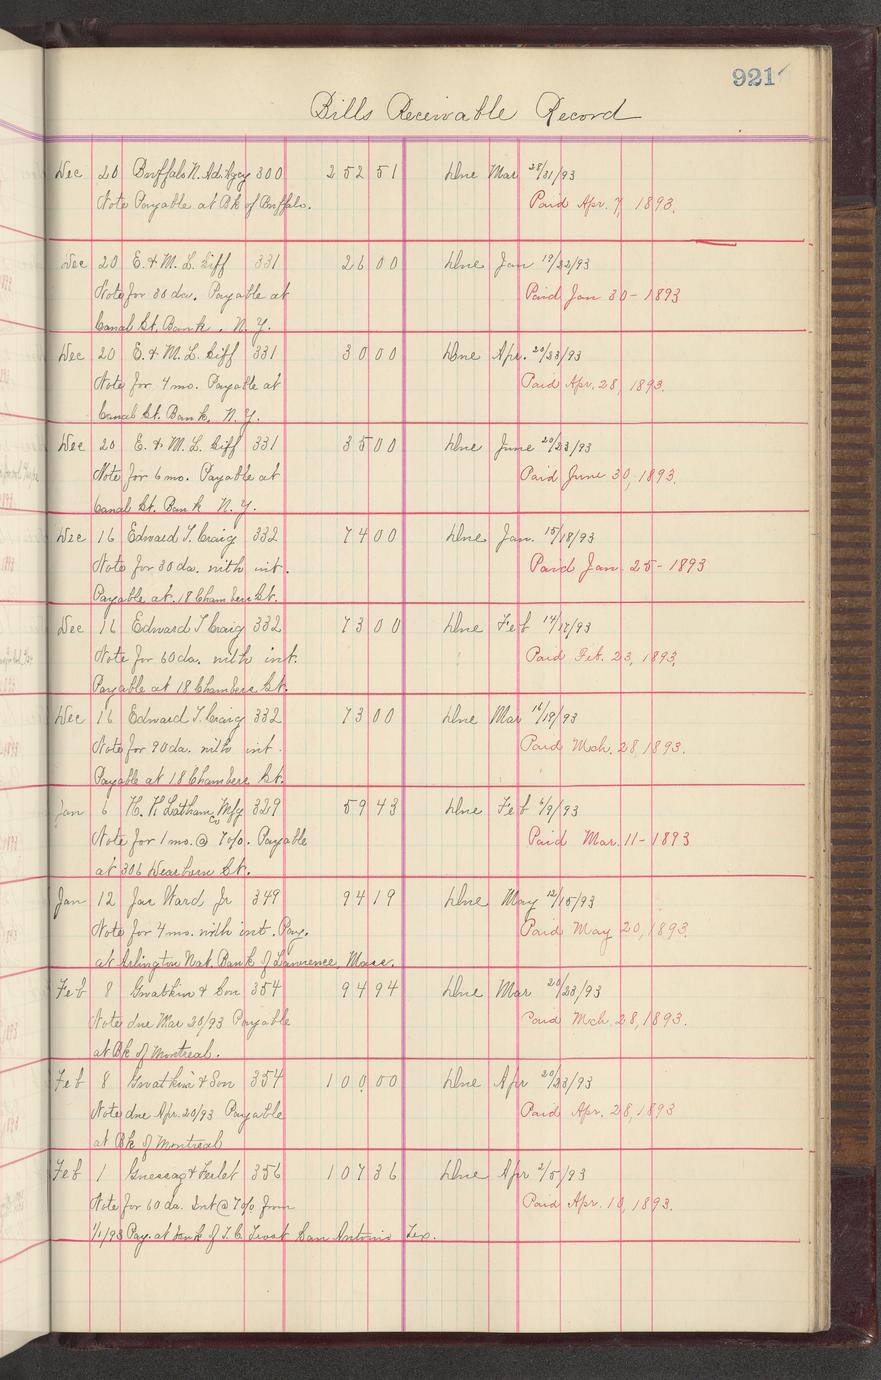 921
Bills Receivable Record
Dec 20 Buffalo N. Ad. Agcy 300 252 51 Due Mar 28/31/93
Note Payable at Bk of Buffalo. Paid Apr. 7, 1893.
Dec 20 E. & M. L. Giff 331 26 00 Due Jan 19/22/93
Note for 30 da. Payable at Paid Jan 30 - 1893
Canal St. Bank, N. Y.
Dec 20 E. & M. L. Giff 331 30 00 Due Apr. 20/23/93
Note for 4 mo. Payable at Paid Apr. 28, 1893.
Canal St. Bank, N. Y.
Dec 20 E. & M. L. Giff 331 35 00 Due June 20/23/93
Note for 6 mo. Payable at Paid June 30, 1893.
Canal St. Bank N. Y.
Dec 16 Edward T. Craig 332 74 00 Due Jan. 15/18/93
Note for 30 da. with int. Paid Jan. 25 - 1893
Payable at 18 Chambers St.
Dec 16 Edward T Craig 332 73 00 Due Feb 14/17/93
Note for 60 da. with int. Paid Feb. 23, 1893.
Payable at 18 Chambers St.
Dec 16 Edward T. Craig 332 73 00 Due Mar 16/19/93
Note for 90 da. with int. Paid Mch. 28, 1893.
Payable at 18 Chambers St.
Jan 6 H. K Latham Mfg Co 329 59 43 Due Feb 6/9/93
Note for 1 mo. @ 7%. Payable Paid Mar. 11 - 1893
at 306 Dearborn St.
Jan 12 Jas Ward Jr 349 94 19 Due May 12/15/93
Note for 4 mo. with int. Pay. Paid May 20, 1893.
at Arlington Nat. Bank of Lawrence, Mass.
Feb 8 Gwatkin & Son 354 94 94 Due Mar 20/23/93
Note due Mar 20/93 Payable Paid Mch. 28, 1893.
at Bk of Montreal.
Feb 8 Gwatkin & Son 354 100 00 Due Apr 20/23/93
Note due Apr. 20/93 Payable Paid Apr. 28, 1893
at Bk of Montreal
Feb 1 356 107 36 Due Apr 2/5/93
Note for 60 da. Int @ 7% from Paid Apr. 10, 1893.
1/1/93 Pay. at Bank of T. C. Frost San Antonio Tex.